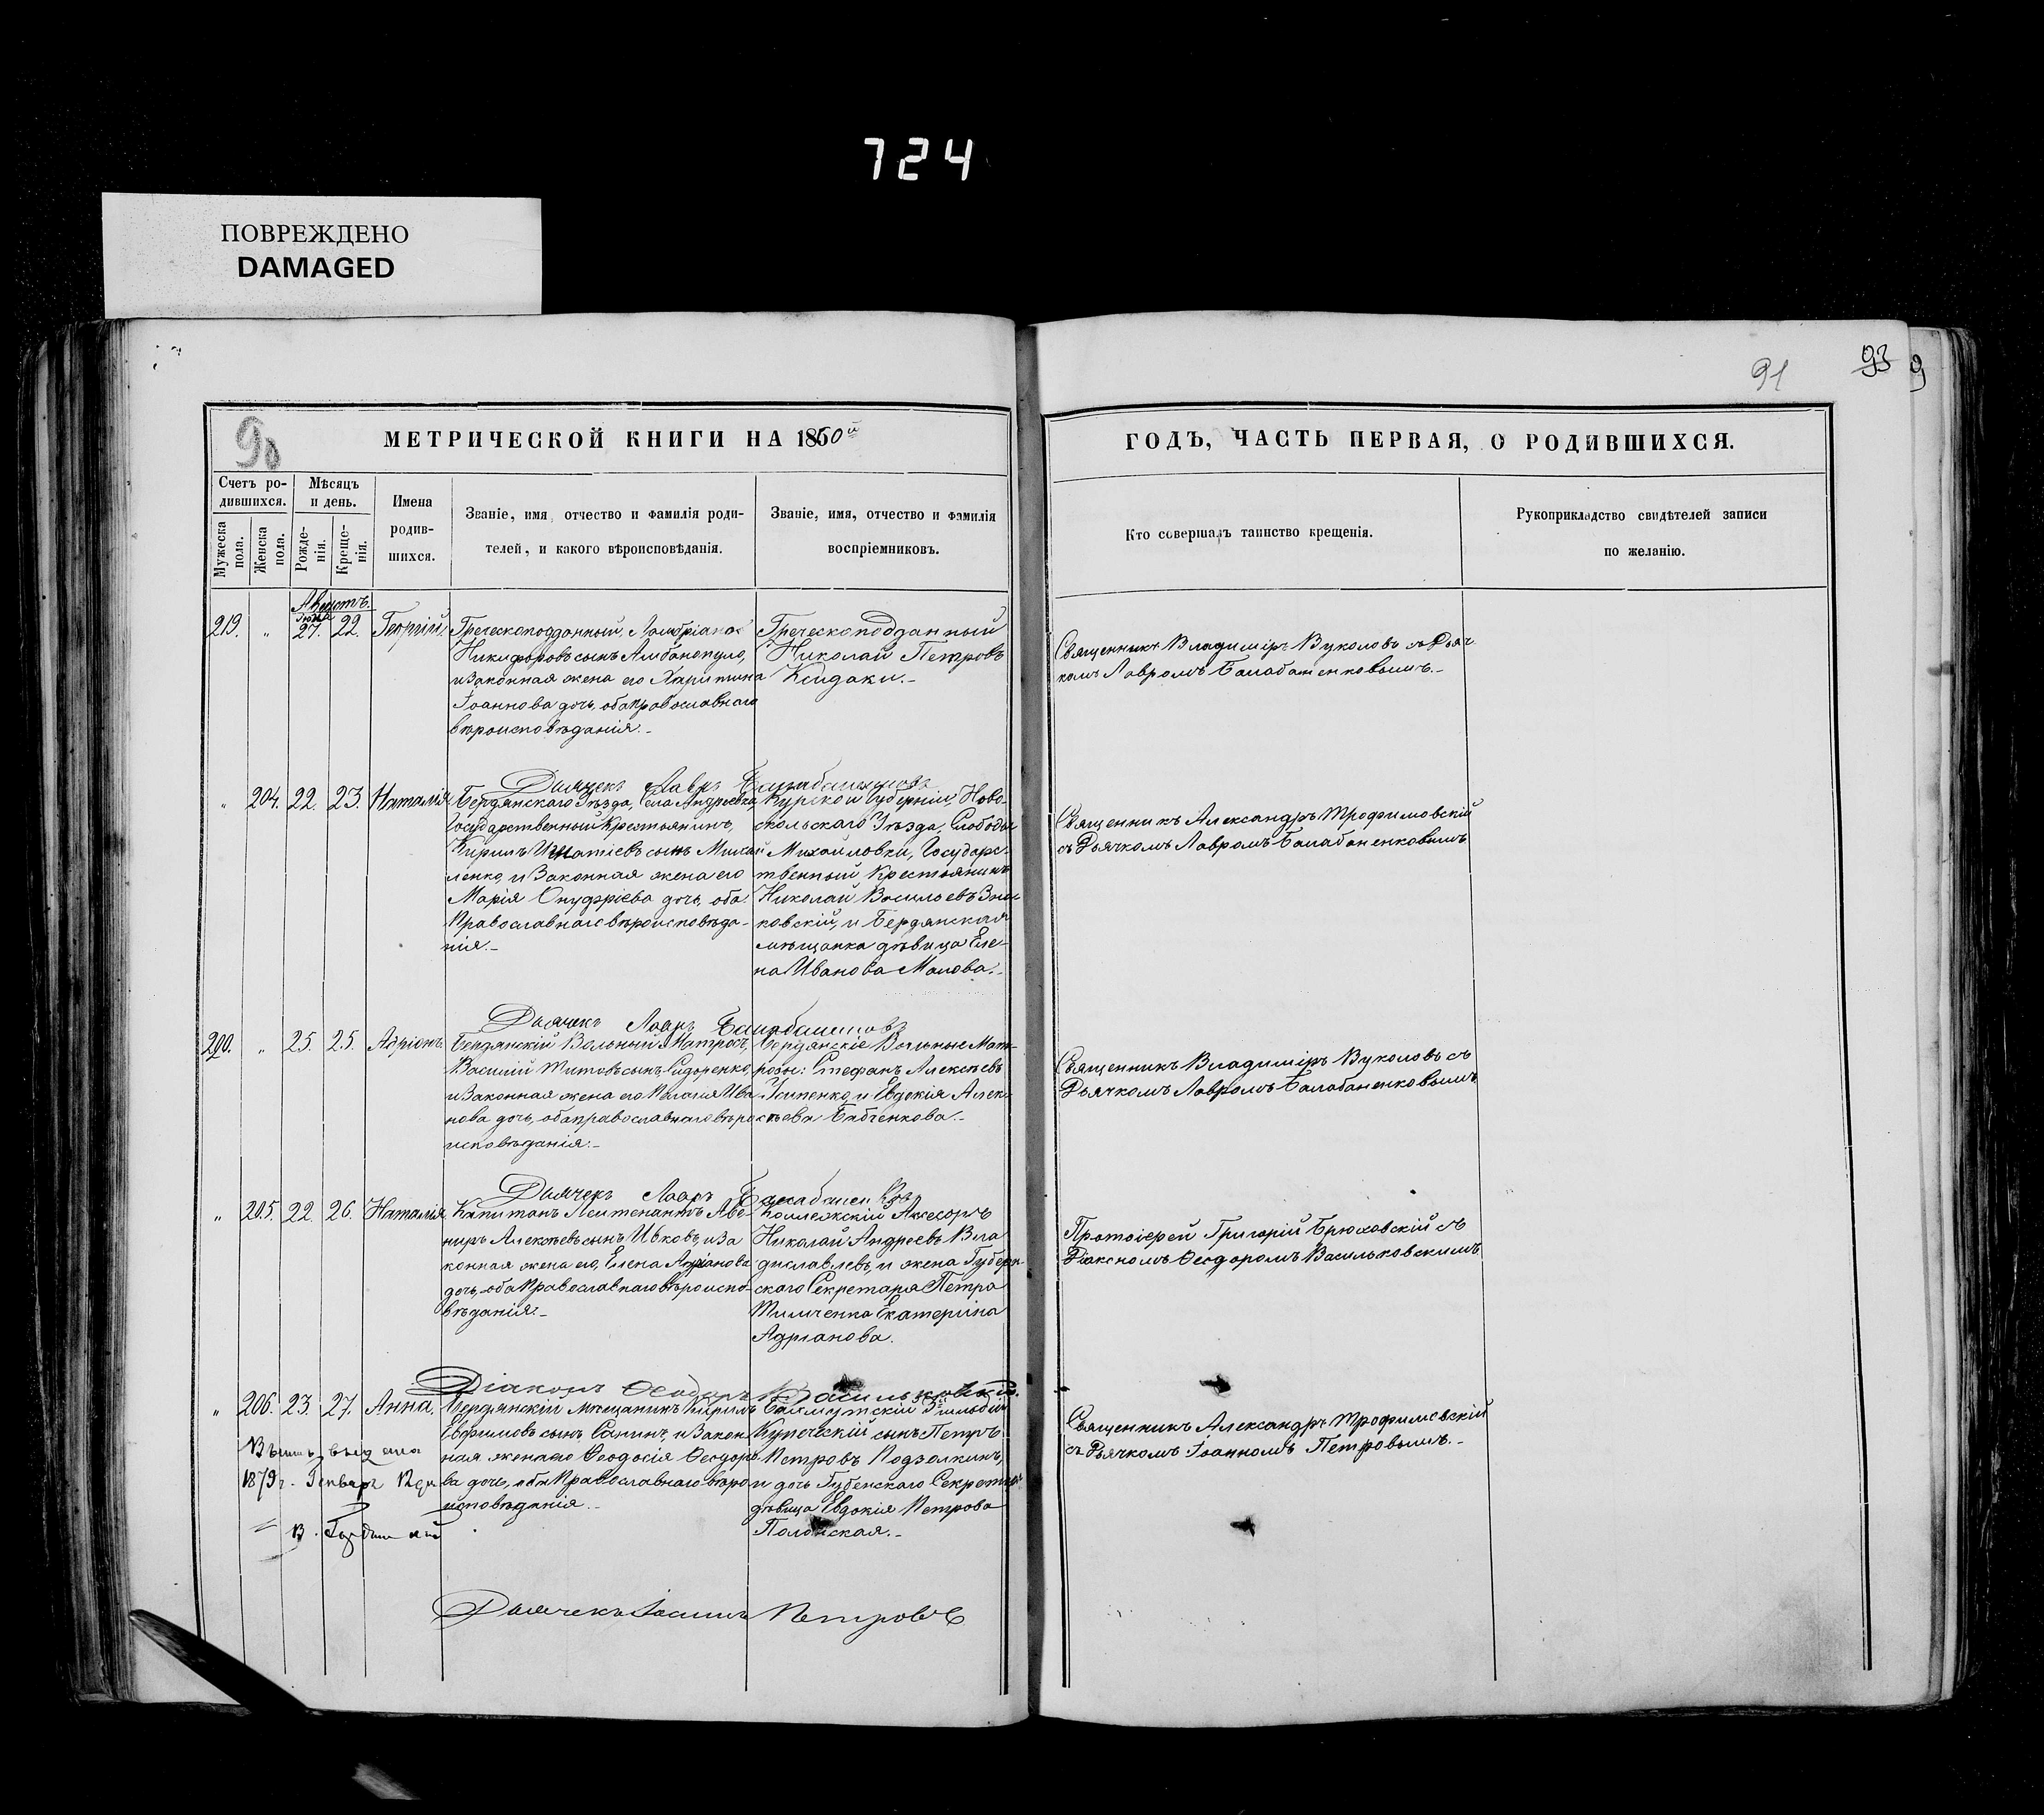 724
ПОВРЕЖДЕНО
DAMAGED
91
93
9
90
МЕТРИЧЕСКОЙ КНИГИ НА 1860й
ГОДЪ, ЧАСТЬ ПЕРВАЯ, О РОДИВШИХСЯ.
Счетъ ро-
дившихся.
Мѣсяцъ
и день.
Мужеска
пола.
Женска
пола.
Рожде-
нія.
Креще-
нія.
Имена
родив-
шихся.
Званіе, имя, отчество и фамилія роди-
телей, и какого вѣроисповѣданія.
Званіе, имя, отчество и фамилія
воспріемниковъ.
Кто совершалъ таинство крещенія.
Рукоприкладство свидѣтелей записи
по желанію.
Августъ.
219. „ 27. 22. Георгій,
Греческоподданный,
Никифоровъ сынъ Амбанопуло,
и Законная жена его
Іоаннова дочь, оба православнаго
вѣроисповѣданія.-
Греческоподданный
Николай Петровъ
Священникъ Владиміръ Вуколовъ съ Дьяч
комъ Лавромъ Балабаненковымъ.-
Дьячекъ Лавръ
„ 204. 22. 23. Наталія
Бердянскаго Уѣзда, Села Андреевки
Государственный Крестьянинъ,
Кирилъ Игнатіевъ сынъ
ленко, и Законная жена его
Марія Онуфріева дочь, оба
Православнаго вѣроисповѣда-
нія.-
Курской Губерніи Ново-
скольскаго Уѣзда, Слободы
Михайловки, Государс-
твенный Крестьянинъ
Николай Васильевъ
ковскій, и Бердянская
мѣщанка дѣвица Еле-
на Иванова Малова.-
Священникъ Александръ Трофимовскій
съ Дьячкомъ Лавромъ Балабаненковымъ
Дьячекъ Лавръ
290. „ 25. 25. Адріанъ
Бердянскій Вольный Матросъ,
Василій Титовъ сынъ Сидоренко,
и Законная жена его Пелагія Ива-
нова дочь, оба православнаго вѣро
исповѣданія.-
Бердянскіе Вольные Мат-
росы: Стефанъ Алексѣевъ
Усипенко, и Евдокія Алек-
сѣева Бабченкова.-
Священникъ Владиміръ Вуколовъ съ
Дьячкомъ Лавромъ Балабаненковымъ
Дьячекъ Лавръ
„ 205. 22. 26. Наталія
Капитанъ Лейтенантъ Аве-
ниръ Алексѣевъ сынъ Ивковъ, и За
конная жена его, Елена Адріанова
дочь, оба Православнаго вѣроиспо-
вѣданія.-
Коллежскій Ассесоръ
Николай Андреевъ Вла
диславлевъ, и жена Губерн-
скаго Секретаря Петра
Тимченка Екатерина
Адріанова.
Протоіерей Григорій Брюховскій съ
Діакономъ Ѳеодоромъ Васильковскимъ
Діаконъ Ѳеодоръ Васильковскій.
„ 206. 23. 27. Анна.
Бердянскій мѣщанинъ Кирилъ
Евфимовъ сынъ Санинъ, и Закон
ная жена его Ѳеодосія Ѳеодоро
ва дочь, оба Православнаго вѣро
исповѣданія.-
Бахмутскій
Купеческій сынъ Петръ
Петровъ Подзолкинъ,
и дочь Губенскаго Секретаря
дѣвица Евдокія Петрова
Полонская.-
Священникъ Александръ Трофимовскій
съ Дьячкомъ Іоанномъ Петровымъ.-
выдана
1879 г. Генваря 12 дн
Дьячекъ Іоаннъ Петровъ